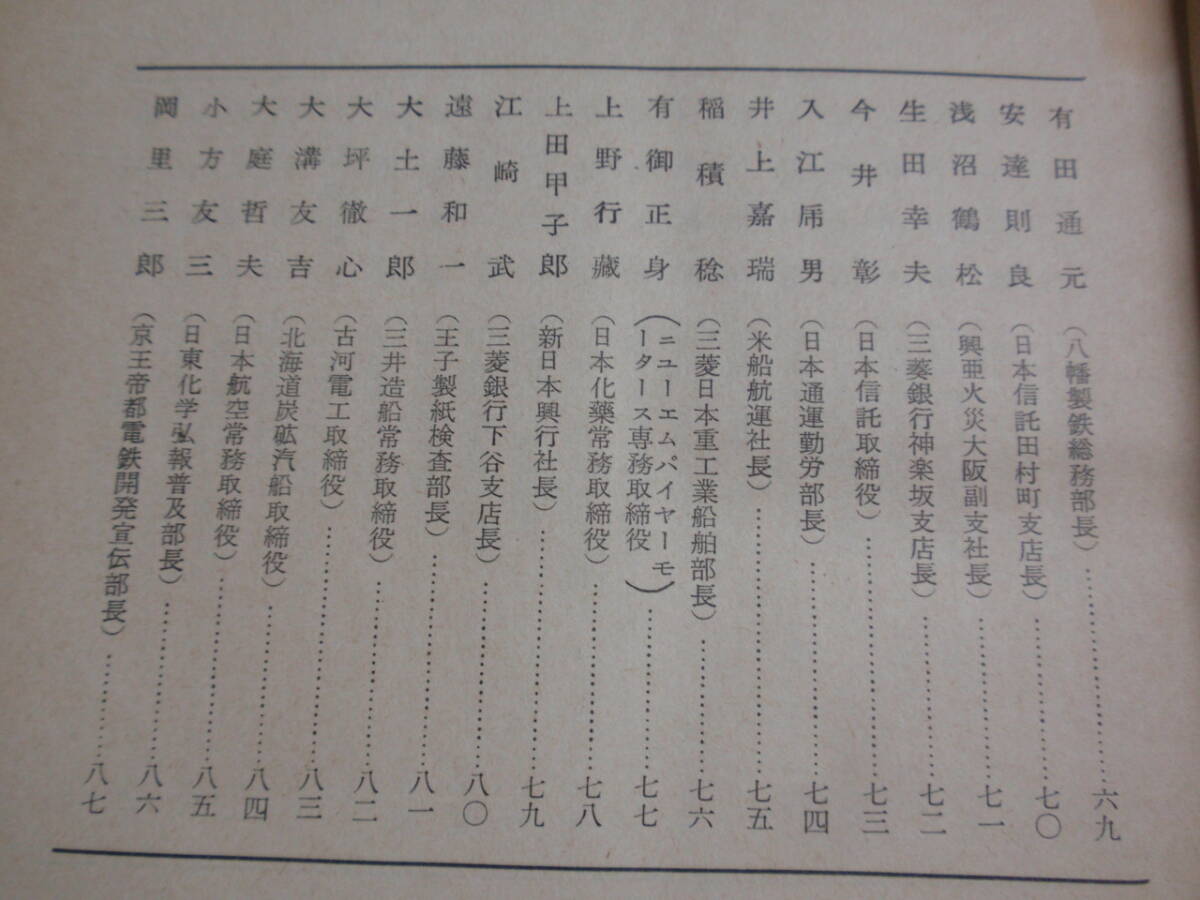 有田通元(八幡製鉄総務部長)…………六九
安達則良(日本信託田村町支店長)…………七〇
浅沼鶴松(興亜火災大阪副支社長)…………七一
生田幸夫(三菱銀行神楽坂支店長)…………七二
今井彰(日本信託取締役)…………七三
入江乕男(日本通運勤労部長)…………七四
井上嘉瑞(米船航運社長)…………七五
稲積稔(三菱日本重工業船舶部長)…………七六
有御正身(ニューエムパイヤーモータース専務取締役)…………七七
上野行藏(日本化薬常務取締役)…………七八
上田甲子郎(新日本興行社長)…………七九
江崎武(三菱銀行下谷支店長)…………八〇
遠藤和一(王子製紙検査部長)…………八一
大土一郎(三井造船常務取締役)…………八二
大坪徹心(古河電工取締役)…………八三
大溝友吉(北海道炭砿汽船取締役)…………八四
大庭哲夫(日本航空常務取締役)…………八五
小方友三(日東化学弘報普及部長)…………八六
岡里三郎(京王帝都電鉄開発宣伝部長)…………八七